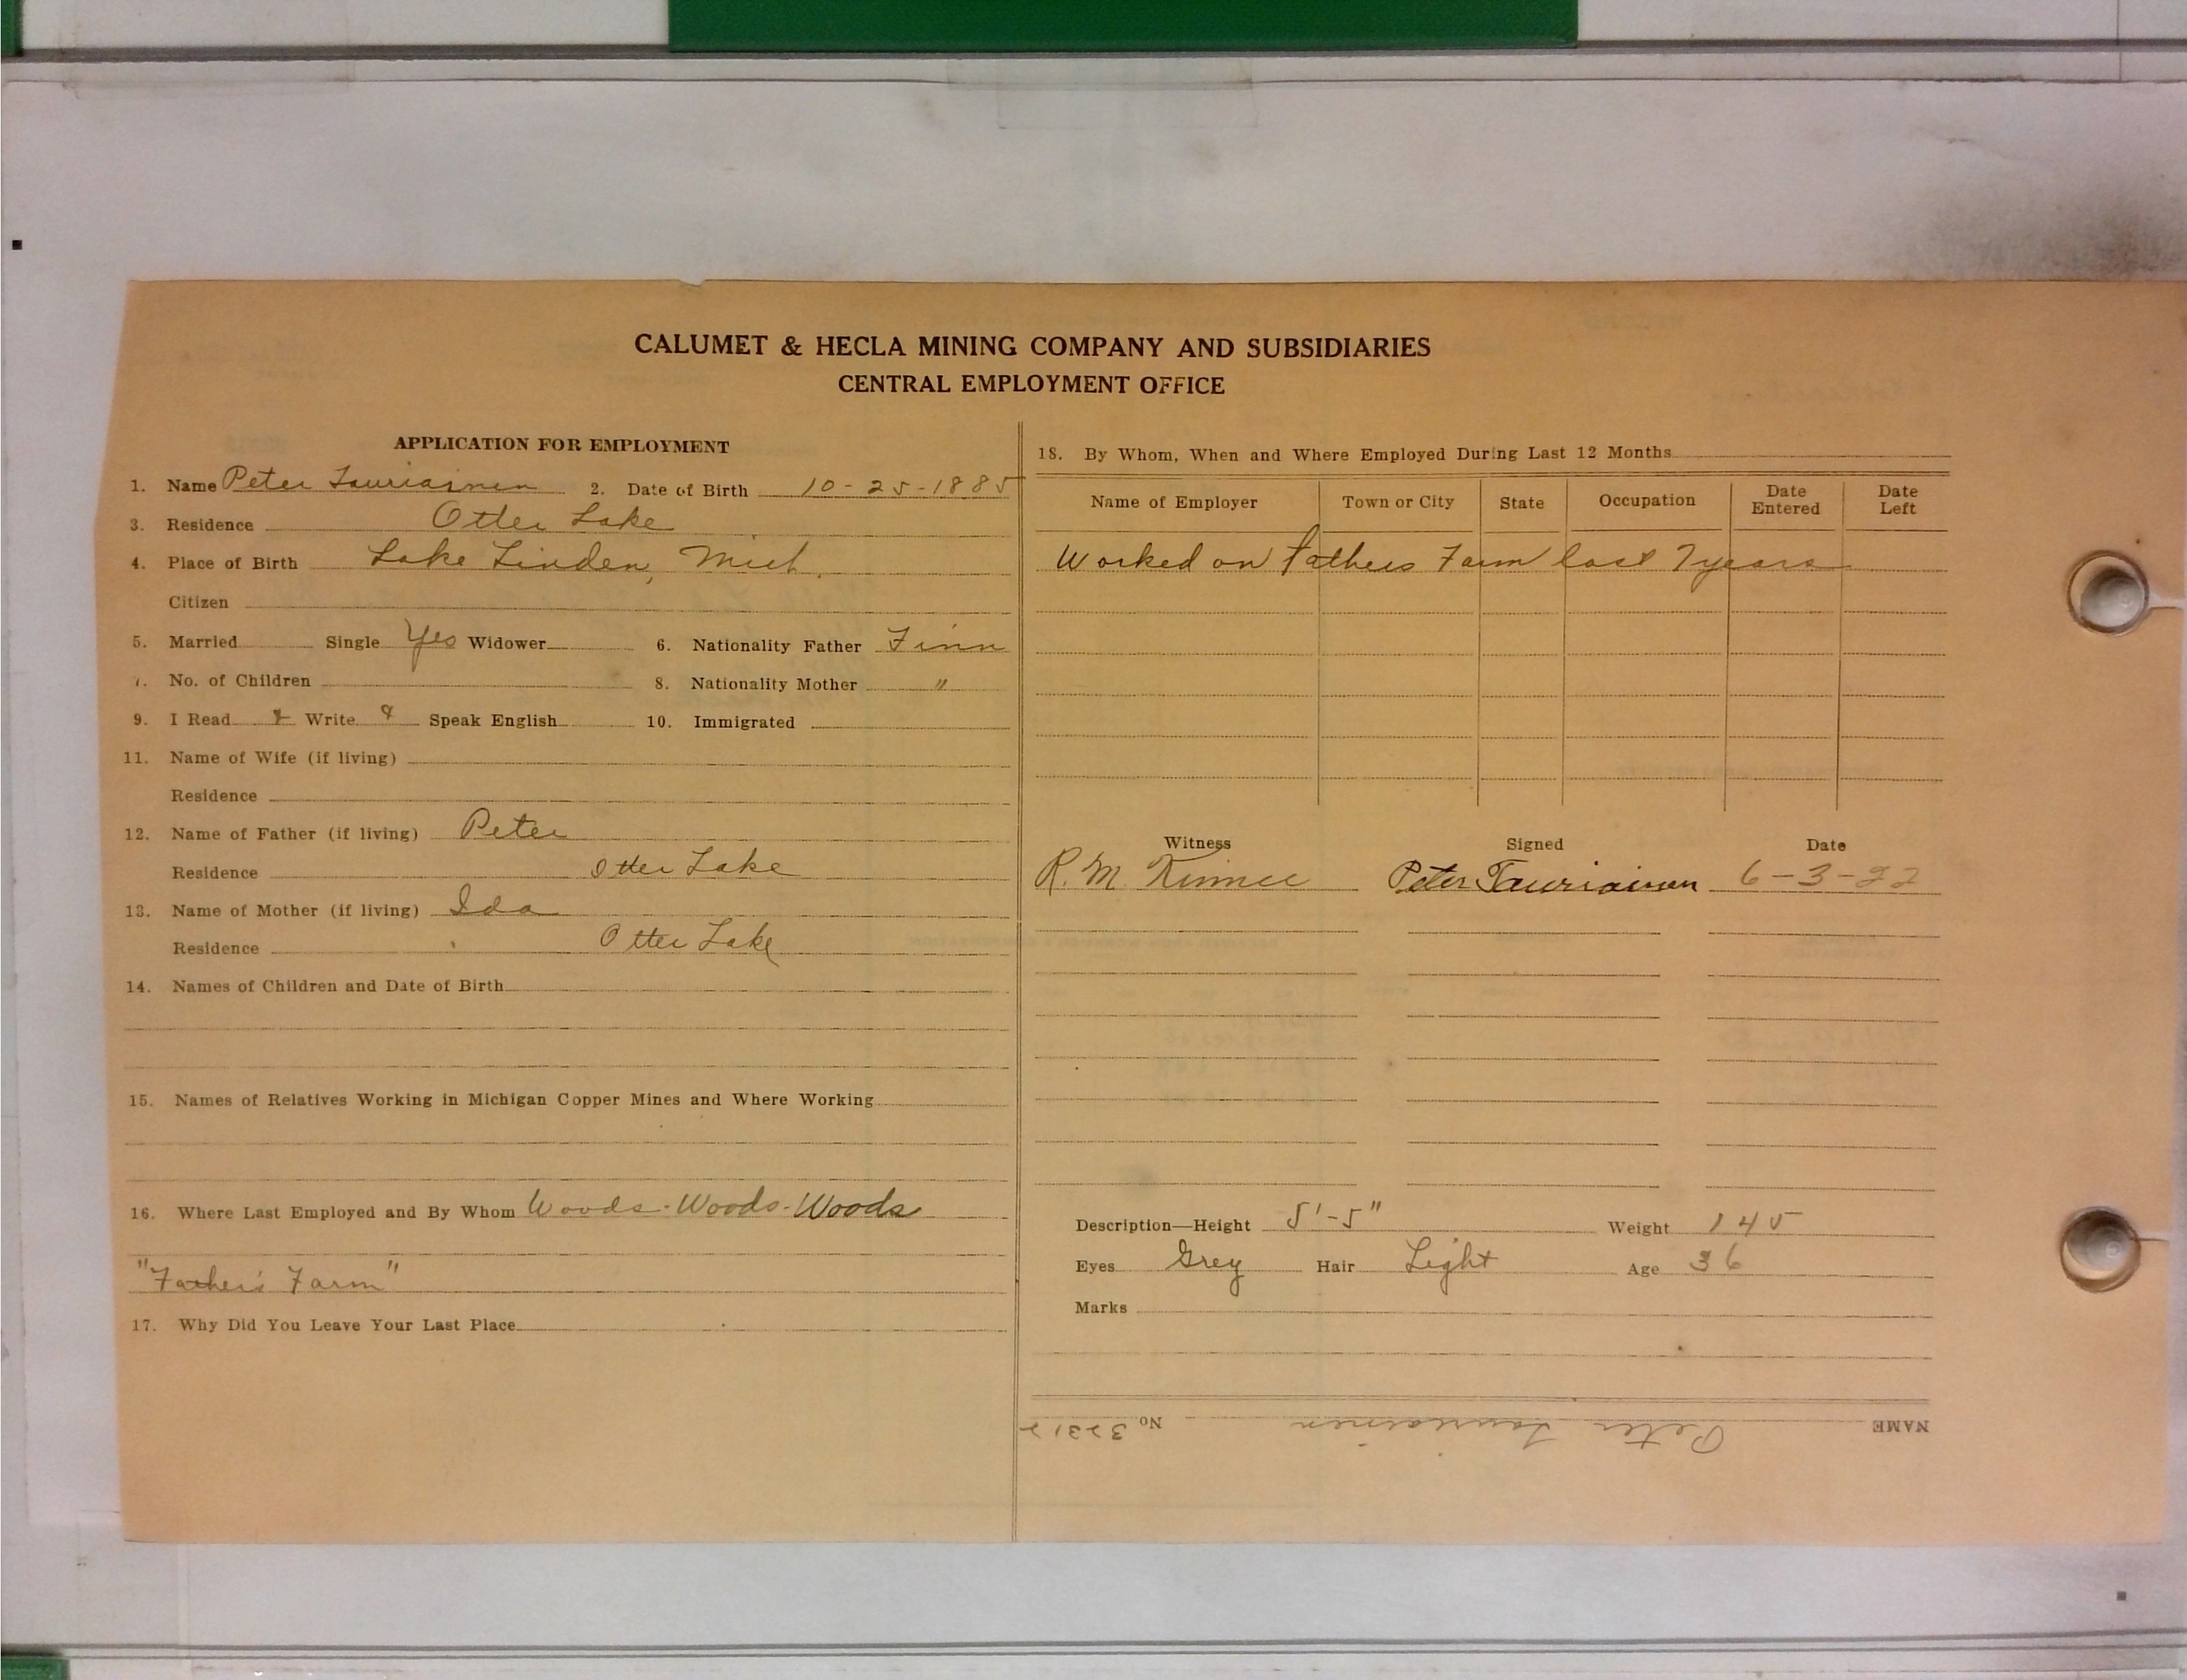 CALUMET & HECLA MINING COMPANY AND SUBSIDIARIES
CENTRAL EMPLOYMENT OFFICE
APPLICATION FOR EMPLOYMENT
1. Name Peter Tauriainen 2. Date of Birth 10-25-1885
3. Residence Otter Lake
4. Place of Birth Lake Linden, Mich.
Citizen
5. Married Single Yes Widower 6. Nationality Father Finn
7. No. of Children 8. Nationality Mother "
9. I Read & Write & Speak English 10. Immigrated
11. Name of Wife (if living)
Residence
12. Name of Father (if living) Peter
Residence Otter Lake
13. Name of Mother (if living) Ida
Residence Otter Lake
14. Names of Children and Date of Birth
15. Names of Relatives Working in Michigan Copper Mines and Where Working
16. Where Last Employed and By Whom Woods-Woods-Woods
"Father's Farm"
17. Why Did You Leave Your Last Place
18. By Whom, When and Where Employed During Last 12 Months
Name of Employer Town or City State Occupation Date Entered Date Left
Worked on fathers Farm last 7 years
Witness Signed Date
R. M. Peter Tauriainen 6-3-22
Description—Height 5'-5" Weight 145
Eyes Grey Hair Light Age 36
Marks
NAME Peter Tauriainen No 32312